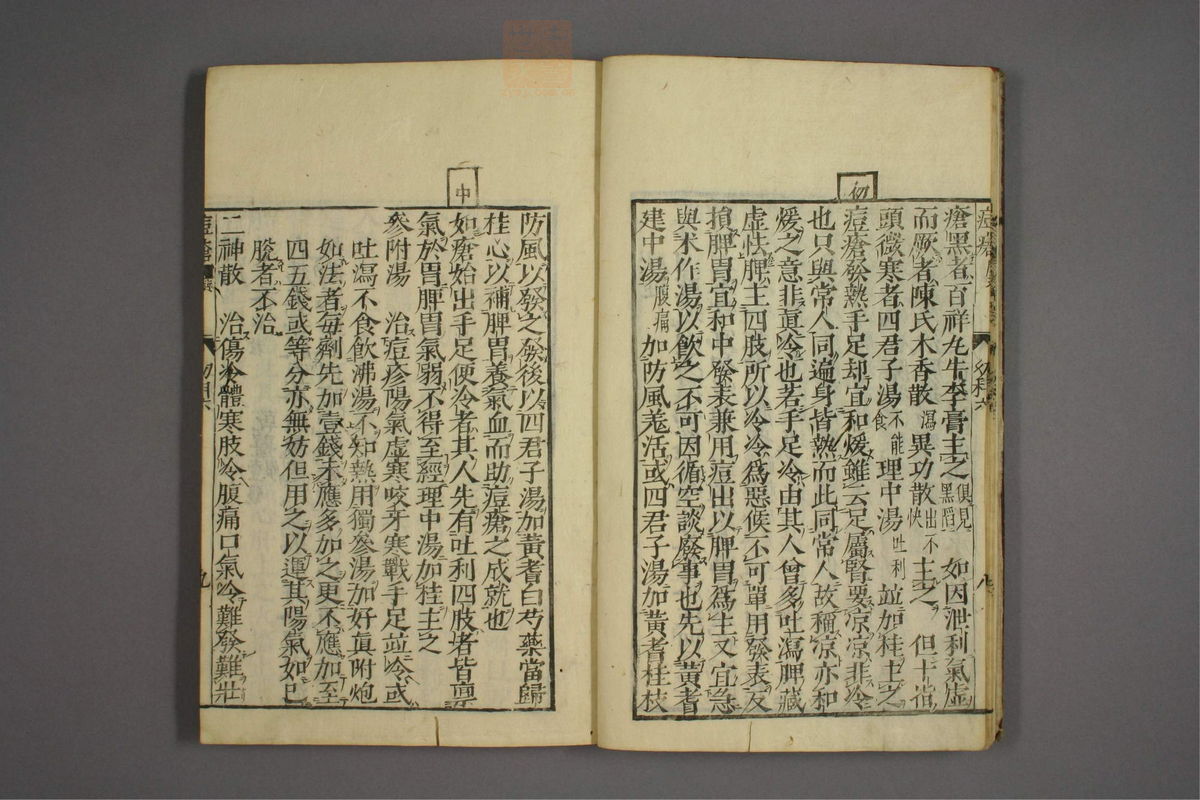 初
瘡黑者百祥丸牛李膏主之俱見黑䧟如因泄利氣虛
而厥者陳氏木香散瀉異功散出不快主之但十指
頭微寒者四君子湯不能食理中湯吐利並加桂主之
痘瘡發熱手足却宜和煖雖云足屬腎要凉凉非冷
也只與常人同遍身皆熱而此同常人故稱凉亦和
煖之意非眞冷也若手足冷由其人曾多吐瀉脾藏
虛怯脾主四肢所以冷冷爲惡候不可單用發表反
損脾胃宜和中發表兼用痘出以脾胃爲主又宜急
與木作湯以飲之不可因循空談廢事也先以黃耆
建中湯腹痛加防風羗活或四君子湯加黃耆桂枝
中
防風以發之發後以四君子湯加黃耆白芍藥當歸
桂心以補脾胃養氣血而助痘瘡之成就也
如瘡始出手足便冷者其人先有吐利四肢者皆稟
氣於胃脾胃氣弱不得至經理中湯加桂主之
參附湯 治痘疹陽氣虛寒咬牙寒戰手足並冷或
吐瀉不食飲沸湯不知熱用獨參湯加好眞附炮
如法者每劑先加壹錢未應多加之更不應加至
四五錢或等分亦無妨但用之以運其陽氣如已
脫者不治
二神散 治傷冷體寒肢冷腹痛口氣冷難發難壯
痘瘡
九